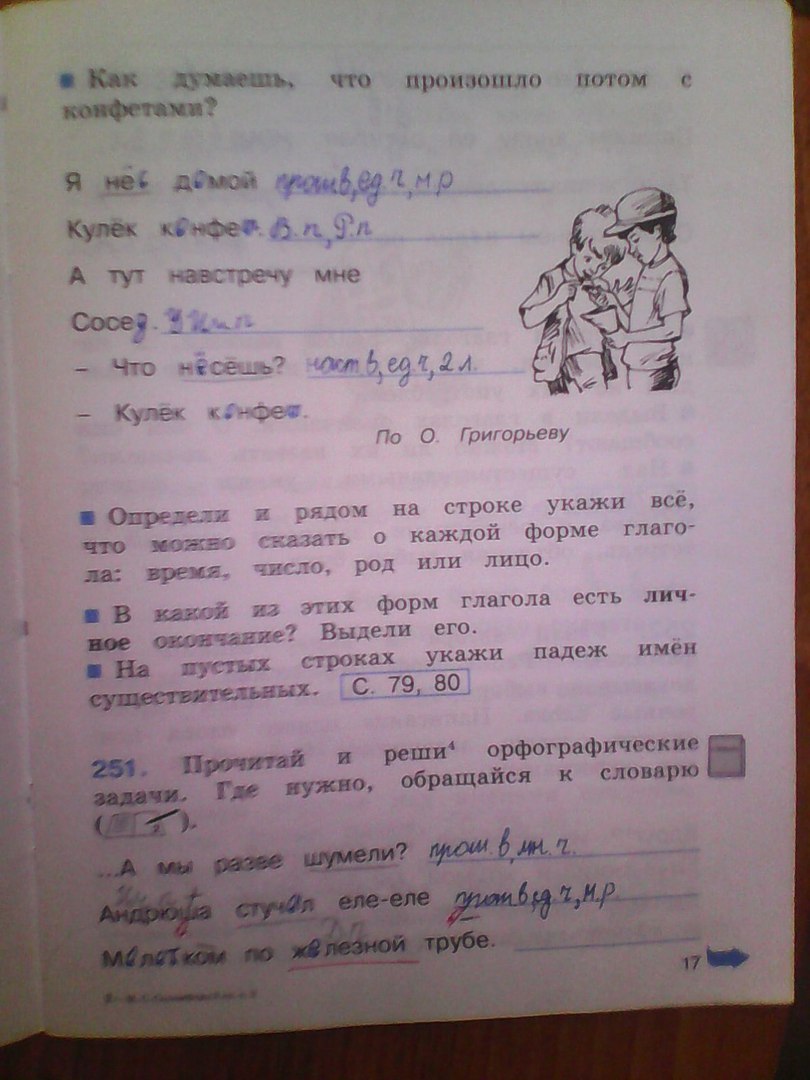 Как думаешь, что произошло потом с
конфетами?
Я нёс домой прош.в, ед.ч, м.р
Кулёк конфет. В.п, Р.п
А тут навстречу мне
Сосед. И.п
– Что несёшь? наст в, ед.ч, 2 л.
– Кулёк конфет.
По О. Григорьеву
Определи и рядом на строке укажи всё,
что можно сказать о каждой форме глаго-
ла: время, число, род или лицо.
В какой из этих форм глагола есть лич-
ное окончание? Выдели его.
На пустых строках укажи падеж имён
существительных. С. 79, 80
251. Прочитай и реши⁴ орфографические
задачи. Где нужно, обращайся к словарю
( ).
...А мы разве шумели? прош. в, мн. ч.
Андрюша стучал еле-еле прош в, ед.ч, м.р
Молотком по железной трубе.
17